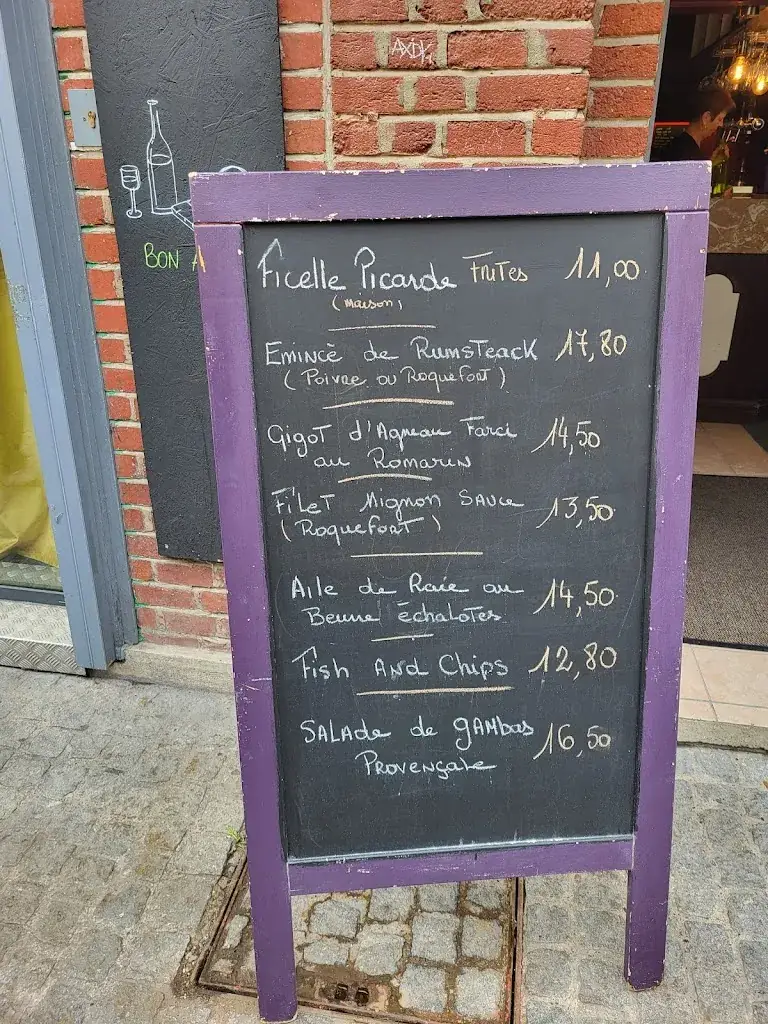 AXDK
BON A
Ficelle Picarde Frites 11,00
(Maison)
Emincè de Rumsteack 17,80
(Poivre ou Roquefort)
Gigot d'Agneau Farci 14,50
au Romarin
Filet Mignon Sauce 13,50
(Roquefort)
Aile de Raie au 14,50
Beurre échalotes
Fish And Chips 12,80
Salade de gambas 16,50
Provençale